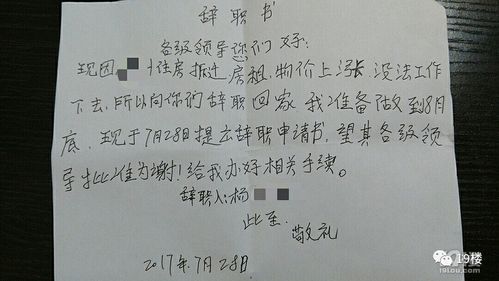 辞职书
各级领导您们好:
现因 住房拆迁房租,物价上涨没法工作
下去,所以向你们辞职回家我准备做到8月
底,现于7月28日提去辞职申请书,望其各级领
导批准为谢!给我办好相关手续。
辞职人:杨
此至.
敬礼
2017年7月28日.
19楼
19lou.com